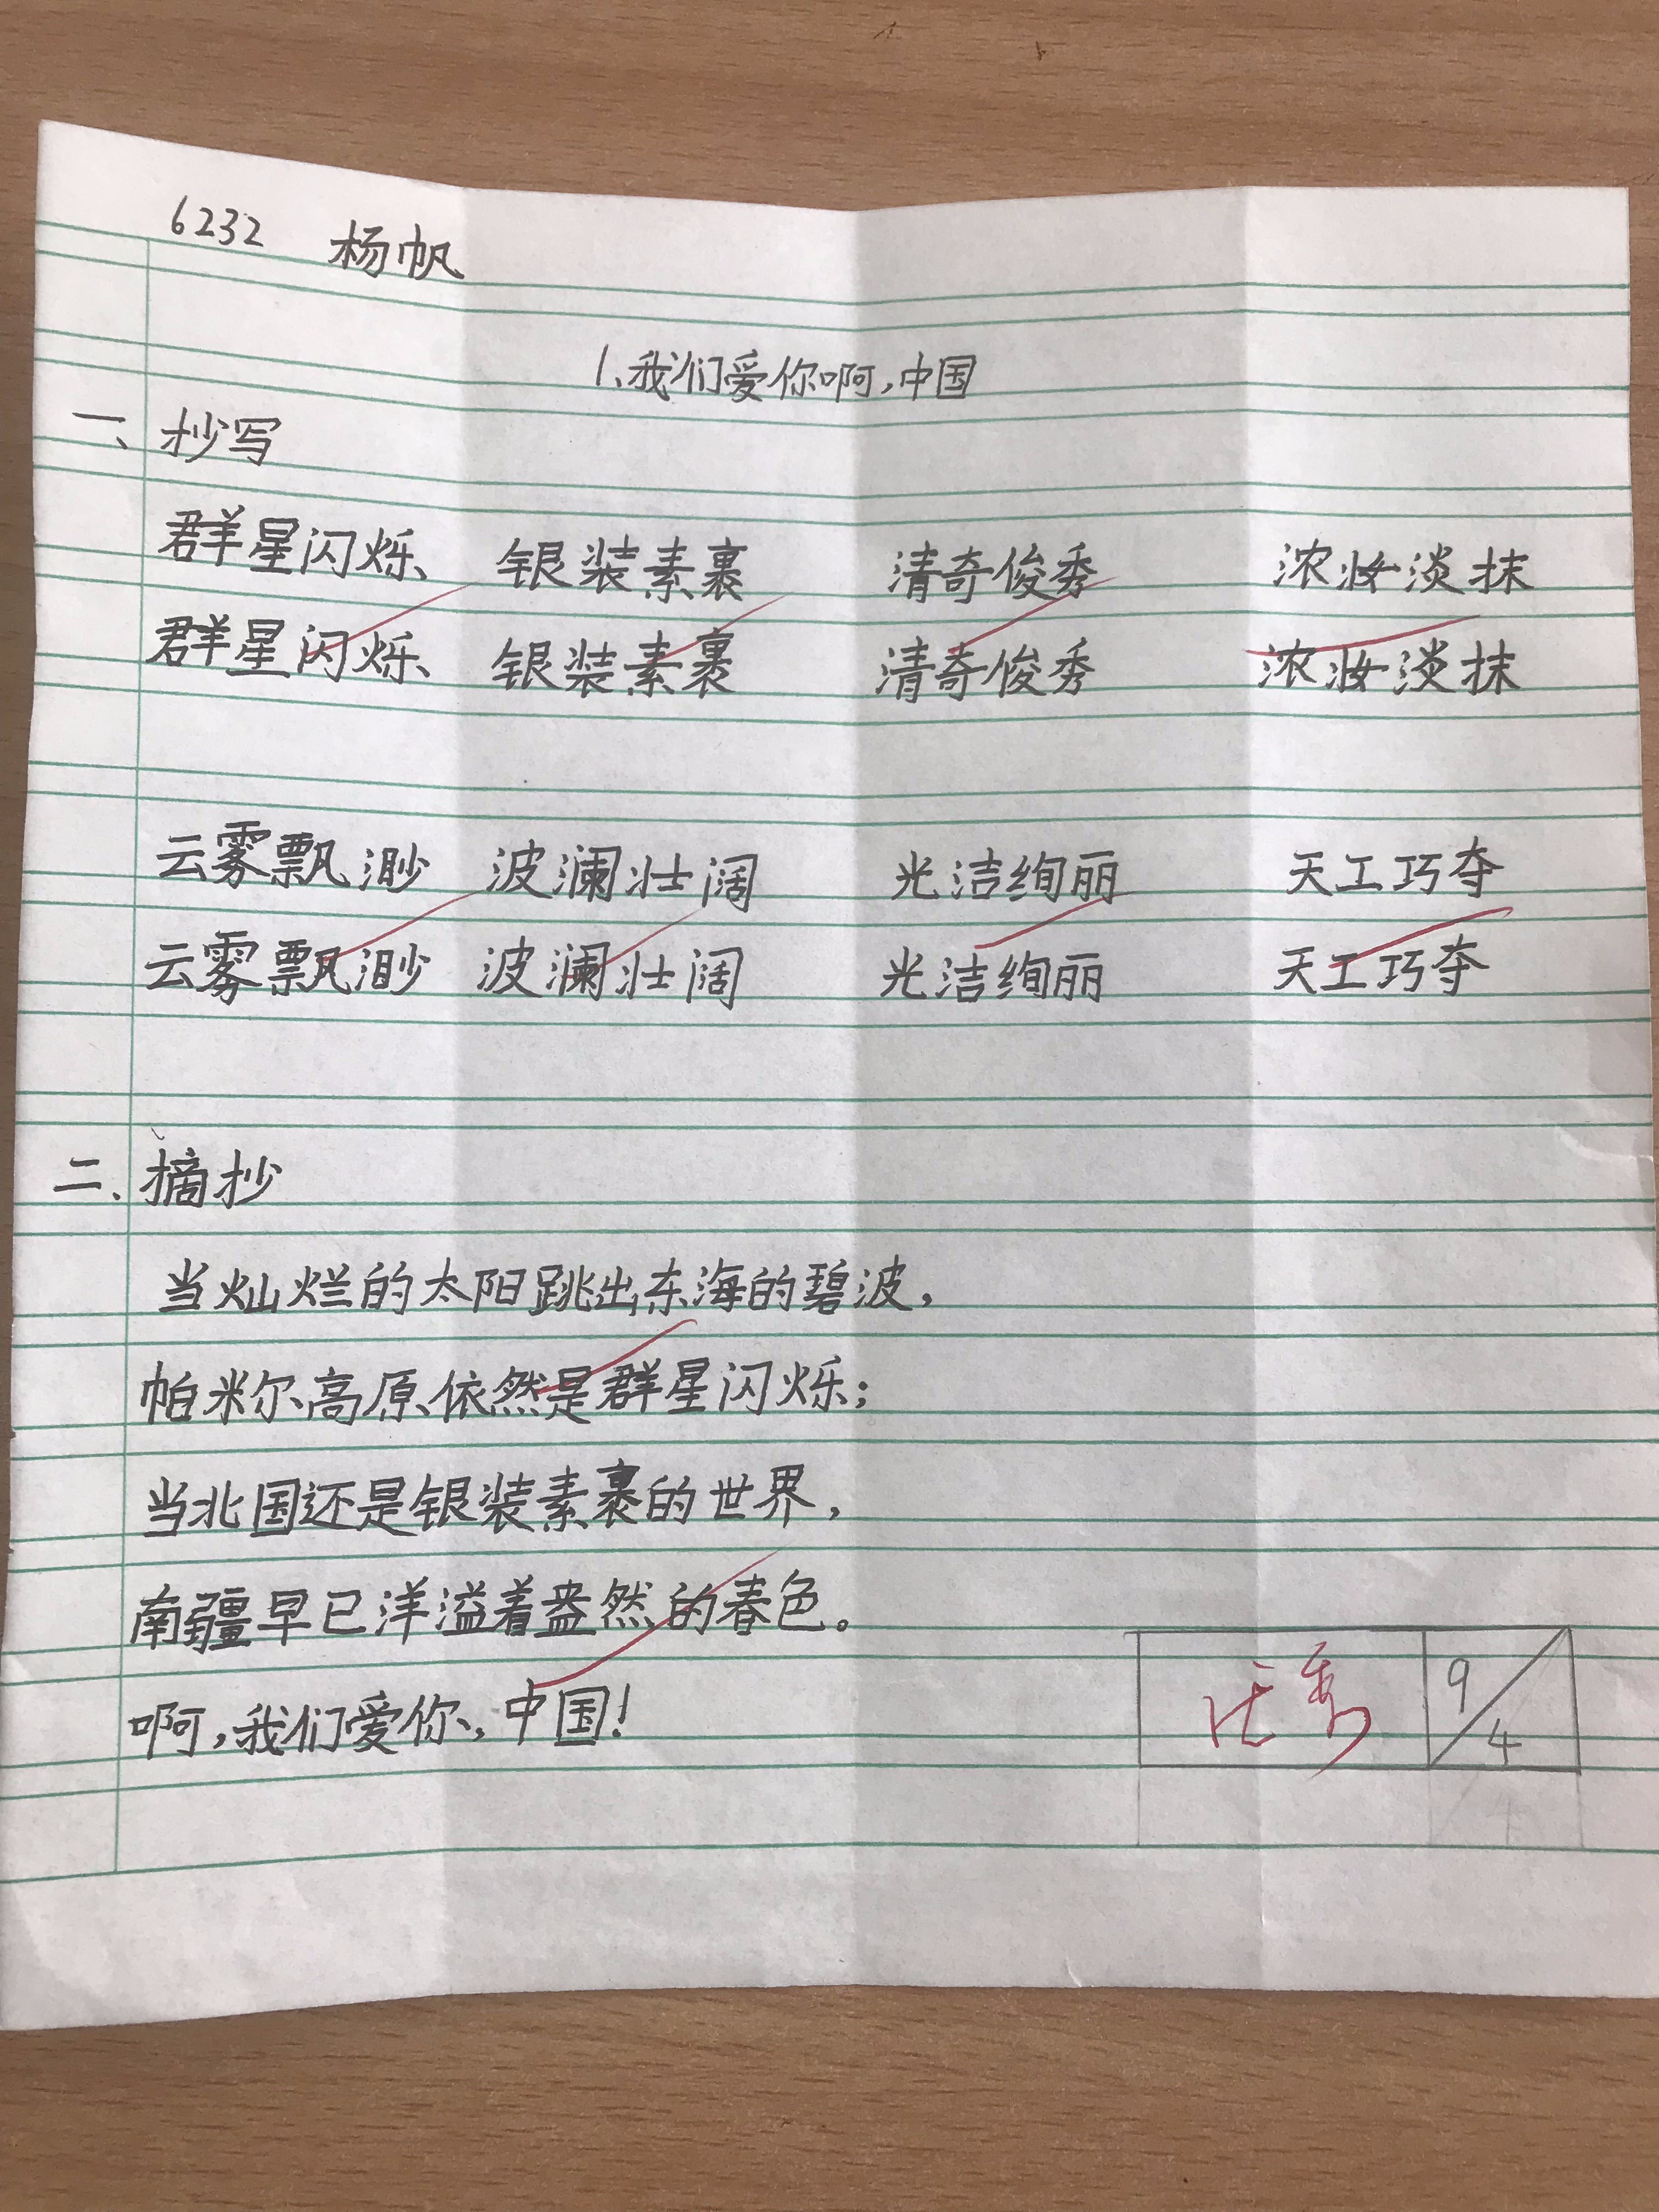 6232 杨帆
1、我们爱你啊,中国
一、抄写
群星闪烁、 银装素裹 清奇俊秀 浓妆淡抹
群星闪烁、 银装素裹 清奇俊秀 浓妆淡抹
云雾飘渺 波澜壮阔 光洁绚丽 天工巧夺
云雾飘渺 波澜壮阔 光洁绚丽 天工巧夺
二、摘抄
当灿烂的太阳跳出东海的碧波,
帕米尔高原依然是群星闪烁;
当北国还是银装素裹的世界,
南疆早已洋溢着盎然的春色。
啊,我们爱你,中国!
优秀 9/4